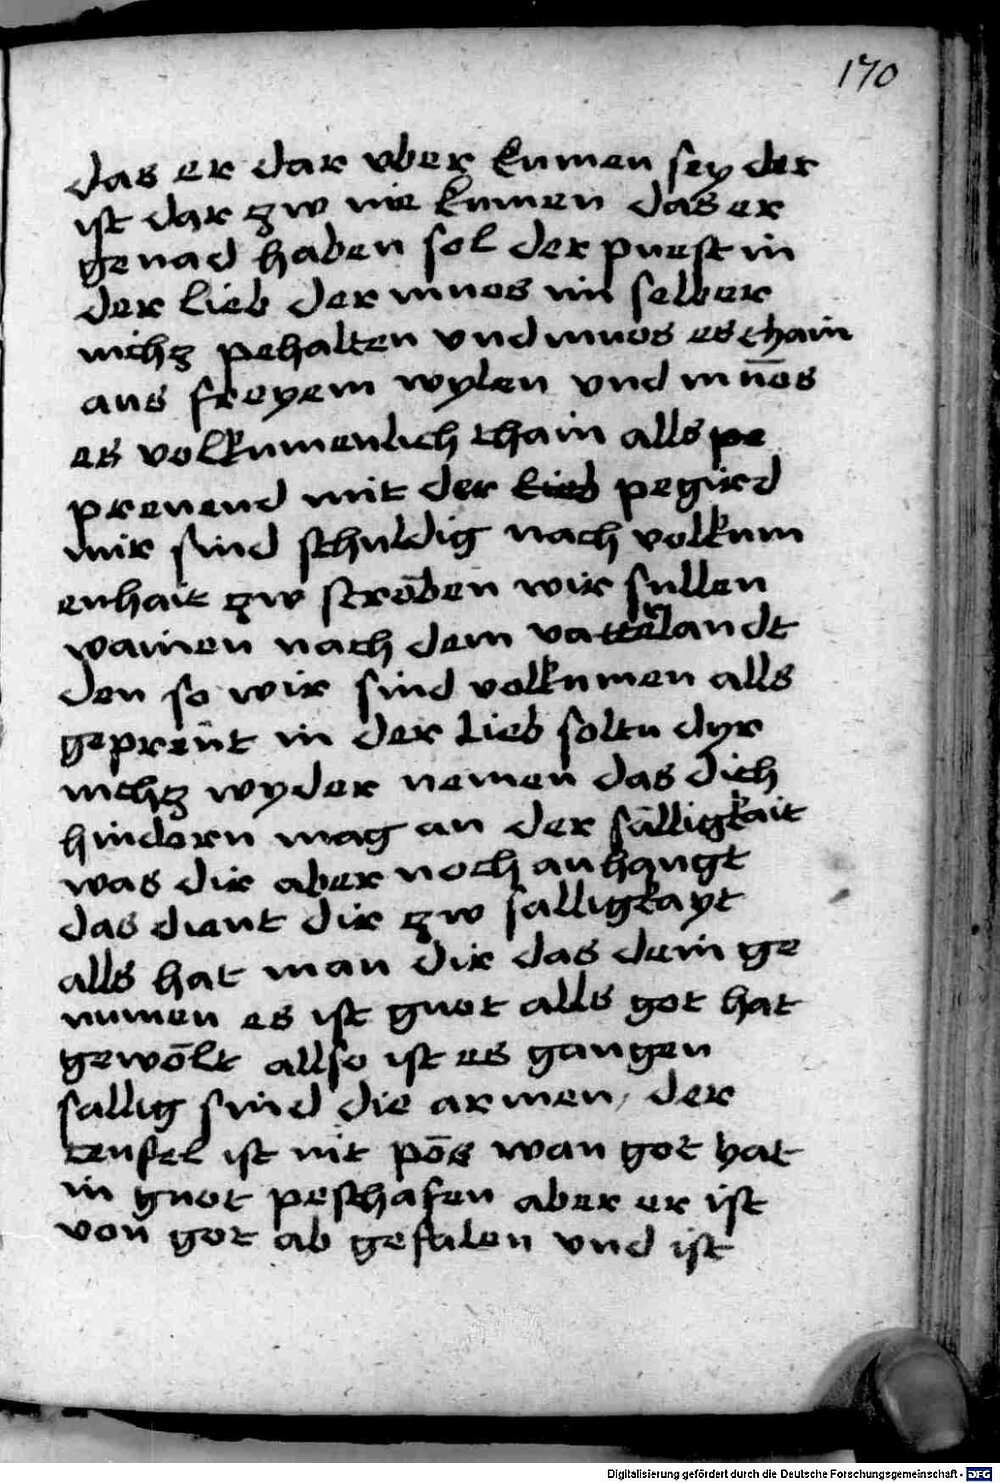 170
das er dar vber kumen sey der
ist dar zw nie kumen das er
genad haben sol der prest in
der lieb der muos im selber
nichz pehalten vnd muos es thain
aus freyem wylen vnd muos
es volkumenlich thain alls pe
prenend mit der lieb pegird
mir sind schuldig nach volkum
enhait zw streben wir sullen
wainen nach dem vatterlandt
den so wir sind volkumen alls
geprent in der lieb soltu dyr
nichz wyder nemen das dich
hindern mag an der sälligkait
was dir aber noch anhangt
das dient dir zw salligkayt
alls hat man dir das dein ge
numen es ist guot alls got hat
gewölt allso ist es gangen
sallig sind die armen / der
teufel ist nit pös wan got hat
in guot peschafen aber er ist
von got ab gefalen vnd ist
Digitalisierung gefördert durch die Deutsche Forschungsgemeinschaft - DFG